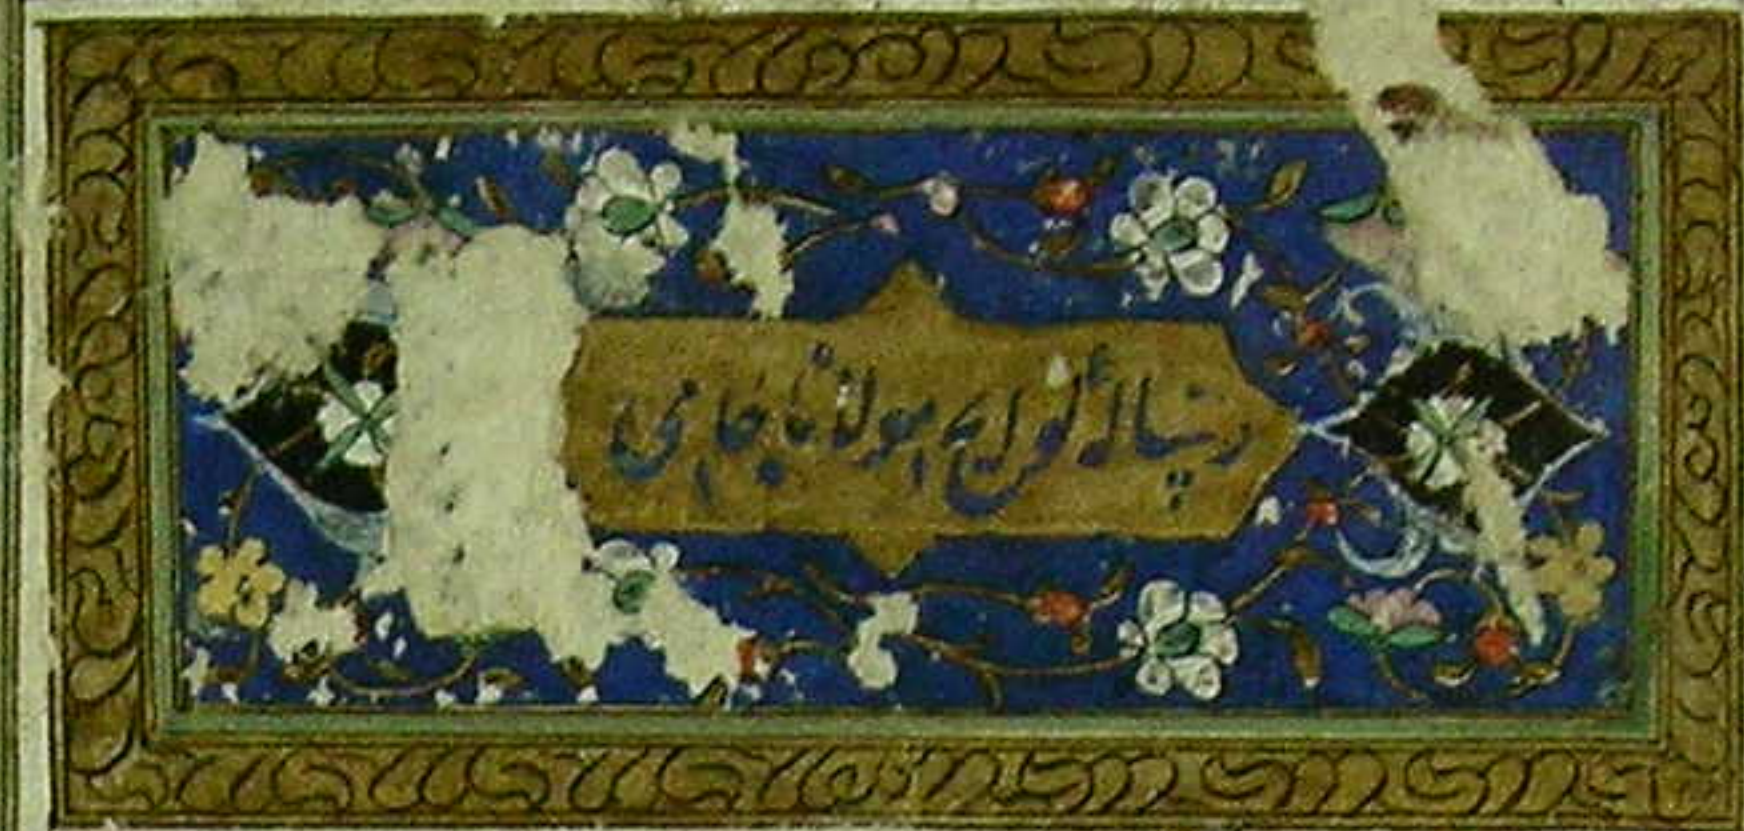 رسالهٔ لوایح مولانا جامی